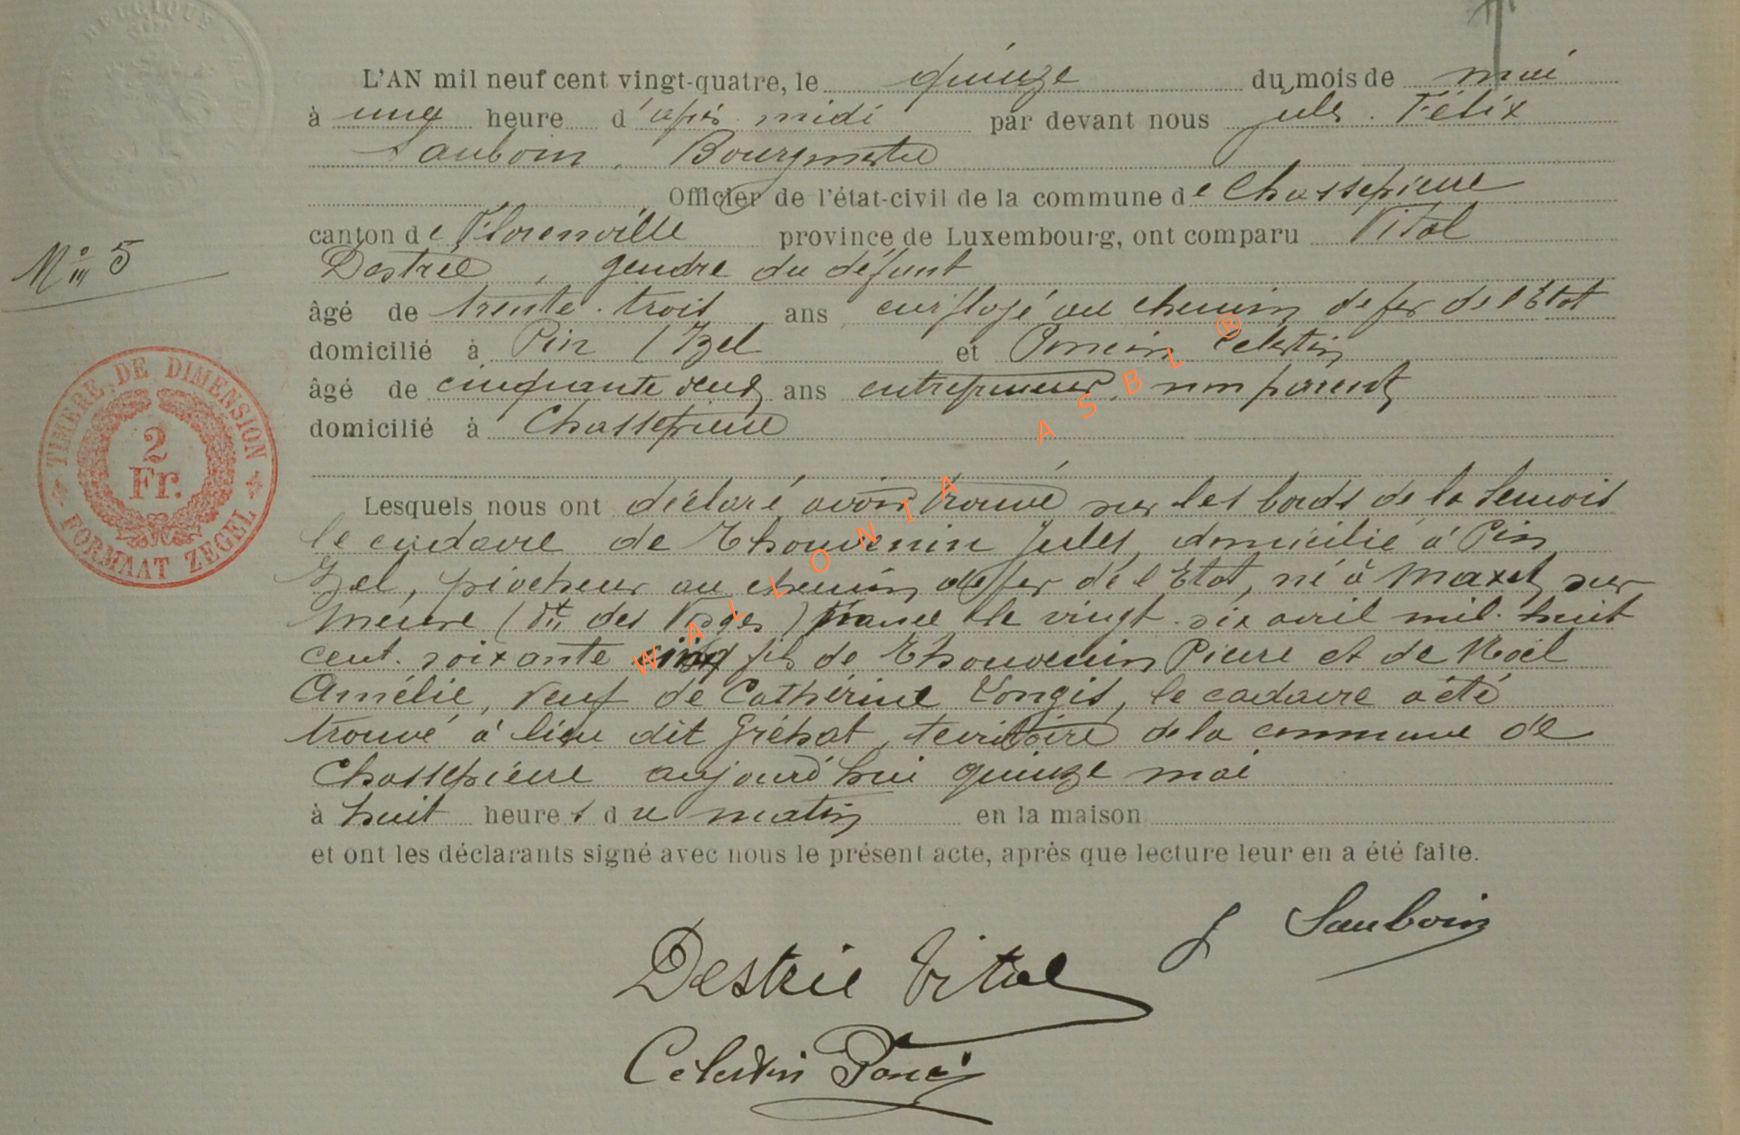 BELGIQUE
L'AN mil neuf cent vingt-quatre, le quinze du mois de mai
à une heure d'après midi par devant nous Jules Félix
Sauboin, Bourgmestre
Officier de l'état-civil de la commune de Chassepierre
canton de Florenville province de Luxembourg, ont comparu Vital
Destrée, gendre du défunt
N° 5
âgé de trente-trois ans employé au chemin de fer de l'Etat
domicilié à Pin / Izel et Poncin Célestin
âgé de cinquante deux ans entrepreneur, non parent
domicilié à Chassepierre
TIMBRE DE DIMENSION
2
Fr.
FORMAAT ZEGEL
Lesquels nous ont déclaré avoir trouvé sur les bords de la Semois
le cadavre de Thouvenin Jules, domicilié à Pin
Izel, piocheur au chemin de fer de l'Etat, né à Maxey sur
Meuse (Dt des Vosges) France le vingt-six avril mil-huit
cent-soixante cinq fils de Thouvenin Pierre et de Noël
Amélie, veuf de Cathérine Longis, le cadavre a été
trouvé à lieu dit Gréhat, territoire de la commune de
Chassepierre aujourd'hui quinze mai
à huit heures du matin en la maison
et ont les déclarants signé avec nous le présent acte, après que lecture leur en a été faite.
WALLONIA ASBL ®
J Sauboin
Destrée Vital
Celestin Poncin